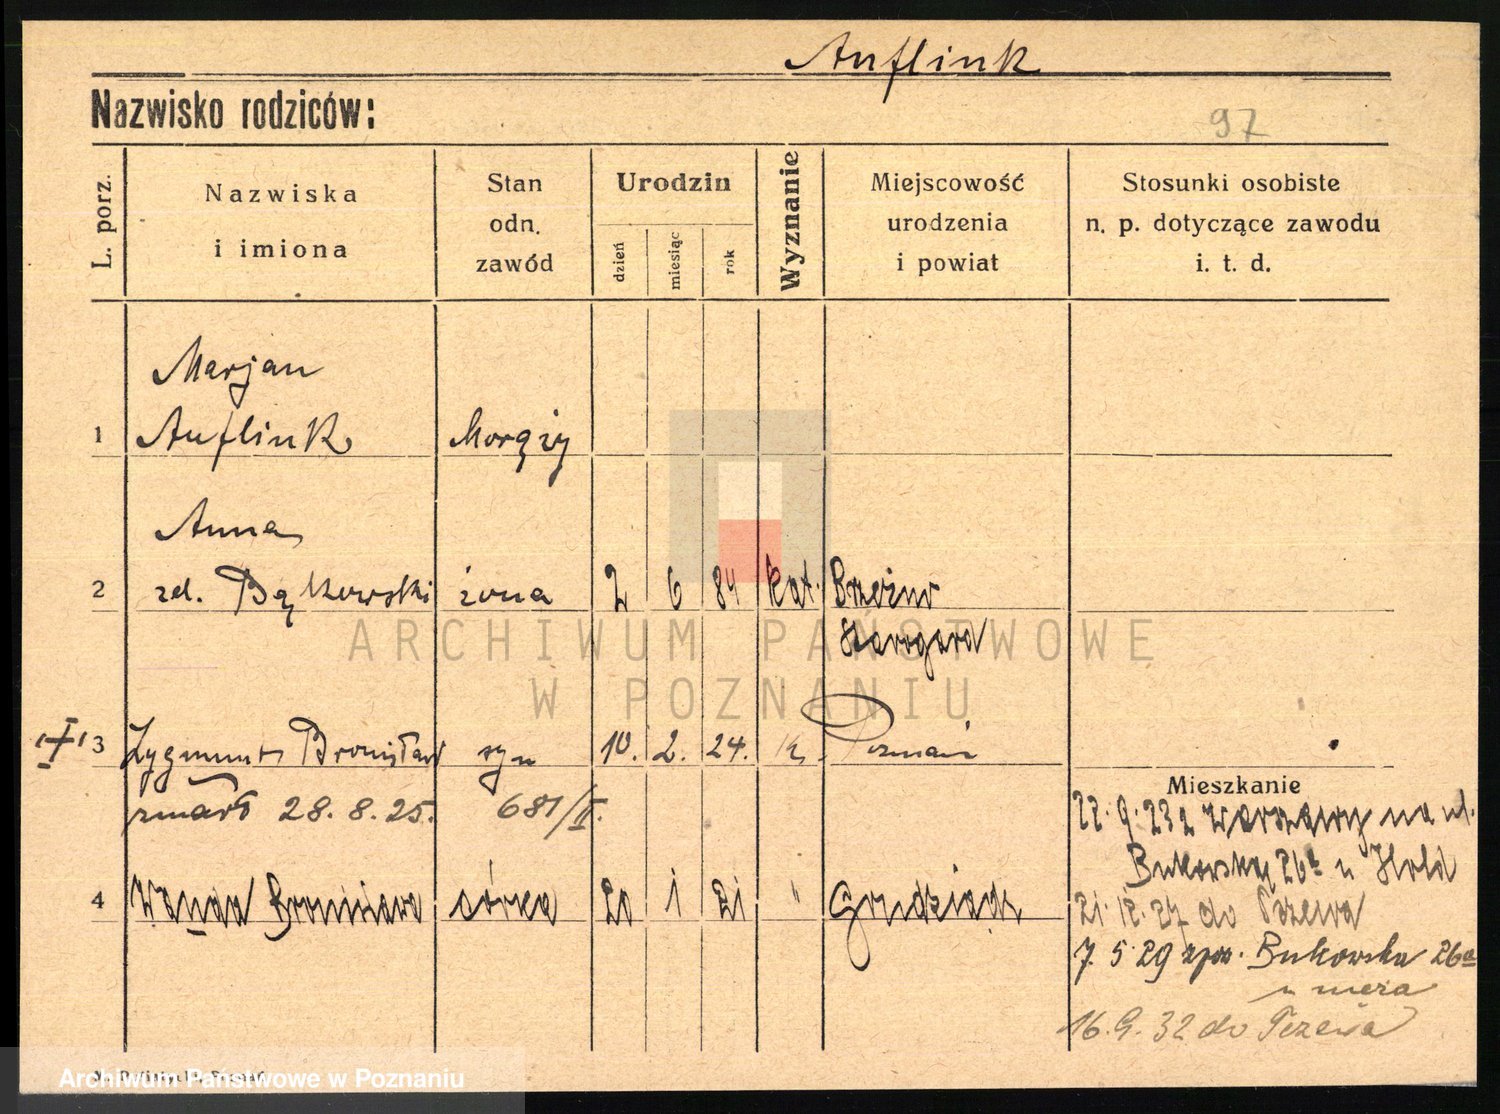 Auflink
Nazwisko rodziców:
97
L. porz.
Nazwiska
i imiona
Stan
odn.
zawód
Urodzin
dzień
miesiąc
rok
Wyznanie
Miejscowość
urodzenia
i powiat
Stosunki osobiste
n. p. dotyczące zawodu
i. t. d.
Marjan
1 Auflink
Anna
2 zd. Bątkowski żona 2 6 84 kat. Brzeźno
Starogard
ARCHIWUM PAŃSTWOWE
W POZNANIU
3 Zygmunt Bronisław syn 10. 2. 24. k. Poznań
zmarł 28. 8. 25. 681/II.
4 Wanda Bronisława córka 20 1 21 " Grudziądz
Mieszkanie
22. 9. 23 z Warszawy na ul.
Bukowską 26a u Hold
21. 12. 27 do Tczewa
7. 5 29 Bukowska 26a
u męża
16. 9. 32 do Tczewa
Archiwum Państwowe w Poznaniu